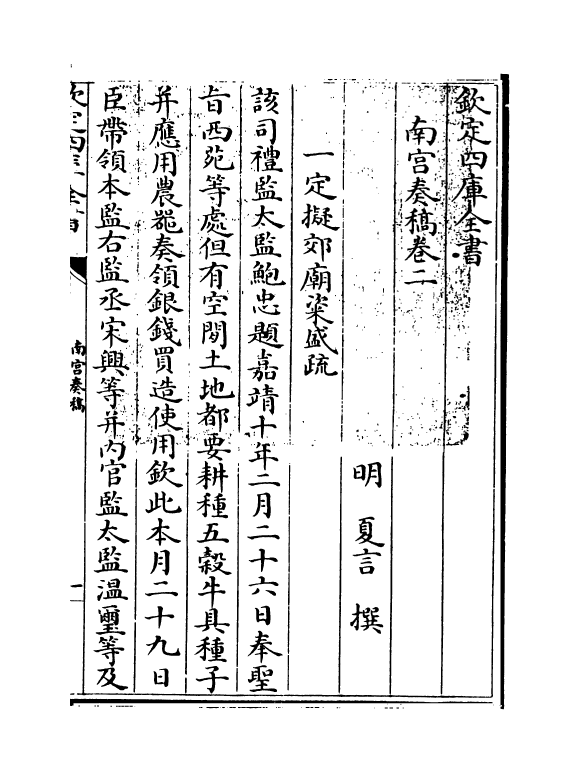 欽定四庫全書
南宮奏稿卷二
明 夏言 撰
一定擬郊廟粢盛疏
該司禮監太監鮑忠題嘉靖十年二月二十六日奉聖
旨西苑等處但有空閒土地都要耕種五穀牛具種子
并應用農器奏領銀錢買造使用欽此本月二十九日
臣帶領本監右監丞宋興等并內官監太監溫璽等及
欽定四庫全書
南宮奏稿
一